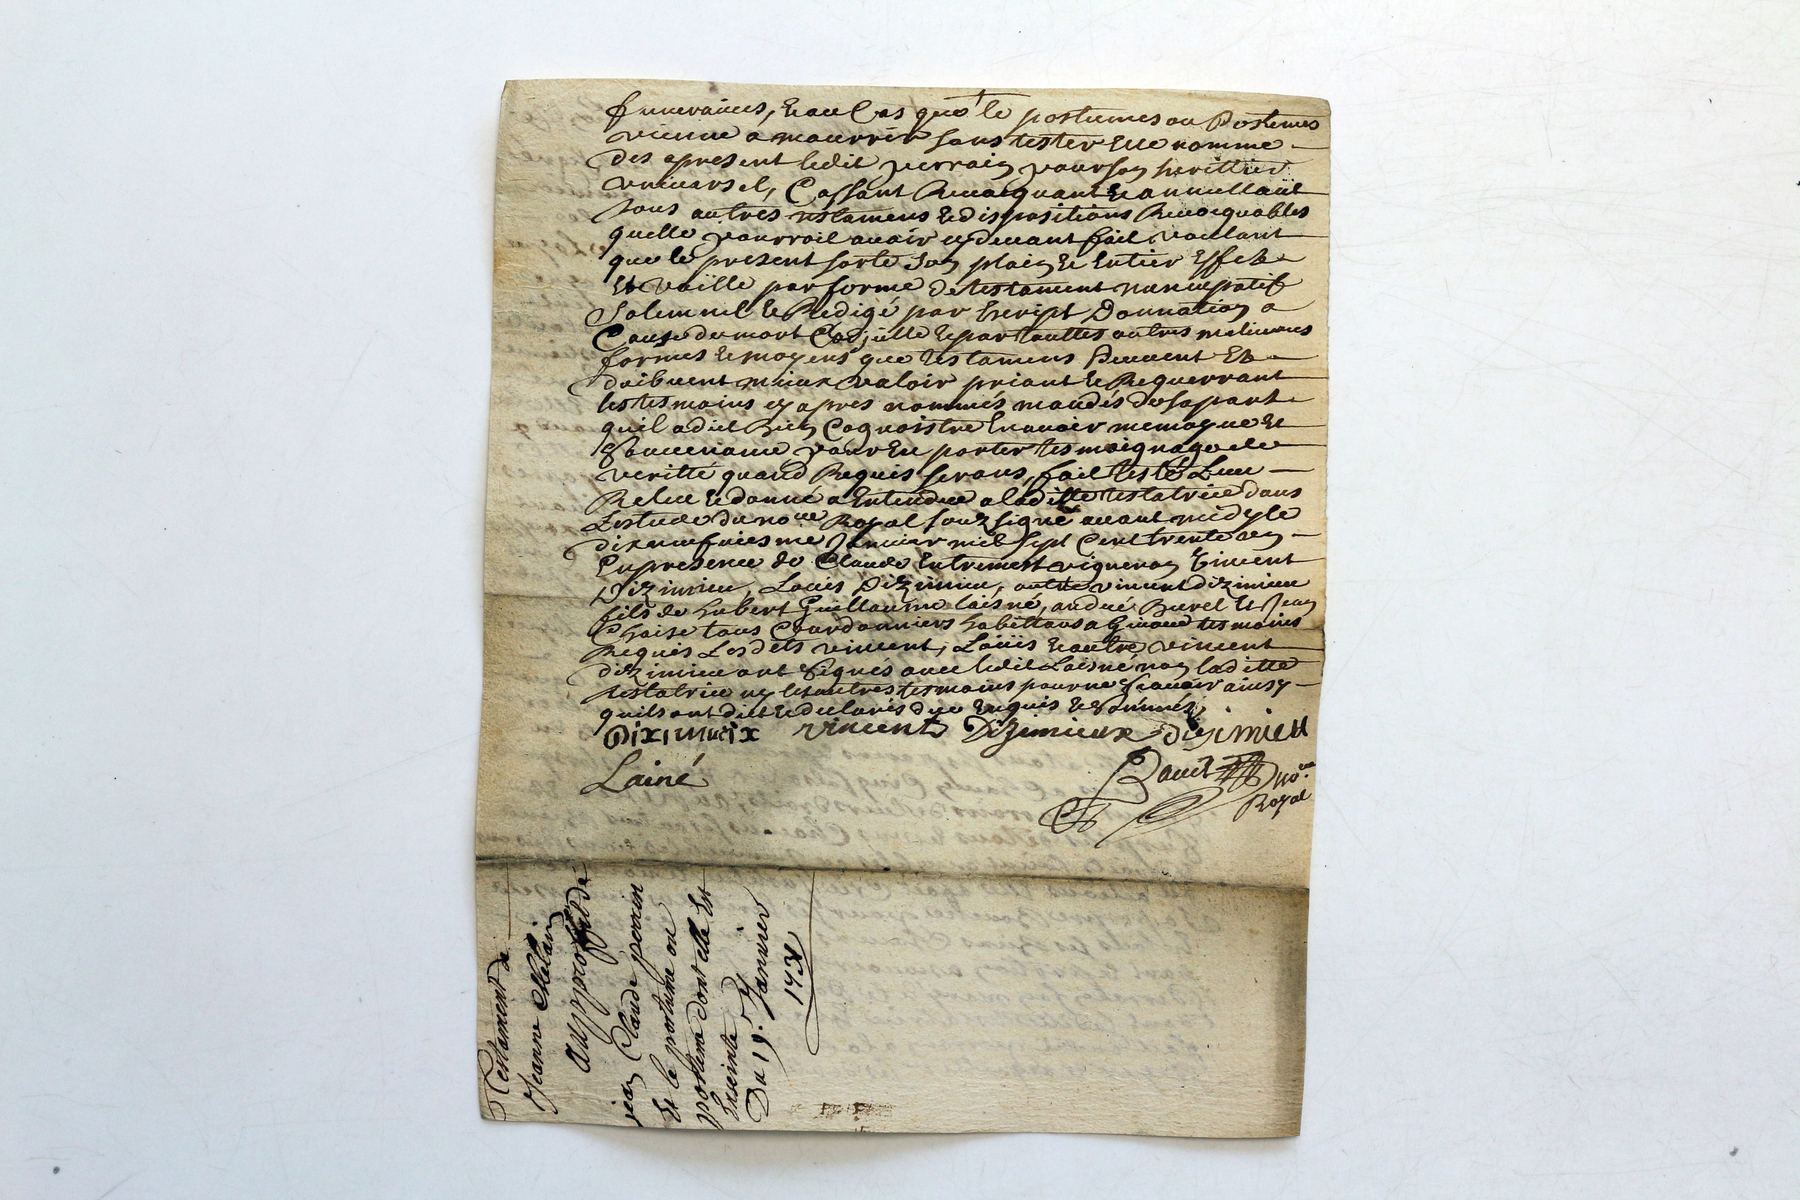 funeraires, Et au Cas que le postumes ou Postemes
vienne a mourrir sans tester Elle nomme
des apresent ledit perrain pour son herittier
universel, Cassant Revocquant Et annullant
tous autres testamens Et dispositions Revocquables
quelle pourroit avoir cy devant fait voullant
que le present sorte son plain Et Entier Effet
Et vaille par forme de testament nuncupatif
Solemnel Et Redigé par Escript Donnation a
Cause de mort Codicille Et par touttes autres melieures
formes Et moyens que testamens Peuvent Et
doibvent mieux valoir priant Et Requerrant
les tesmoins cy apres nommés mandés de sa part
quil a dit Bien Cognoistre En avoir memoyre Et
Souvenance pour En porter tesmoignage de
verité quand Requis serons, fait leu
Releu Et donné a Entendre a laditte testatrice dans
Lestude du no.re Royal souzsigné avant midy le
dixneufviesme Janvier mil sept Cent trente un
En presence de Claude Entremont vigneron Vincent
Dizimieu, Louis Dizimieu, autre vincent dizimieu
fils de hubert Guillaume laisné, andré Burel Et Jean
Chaise tous Courdonniers habittans a tesmoins
Requis Lesdits vincent, Loüis Et autre vincent
dizimieu ont signés avec ledit Laisné non laditte
testatrice ny les autres tesmoins pour ne scavoir ainsy
quils ont dit Et declarés de ce Enquis Et sommés
Diximieix vincent Dizimieux dizimieu
Lainé
no.re
Royal
Testament de
Jeanne
au proffit de
jean Claude perrin
Et le postume ou
postheme dont elle Est
Enceinte
Du 19. Janvier
1731